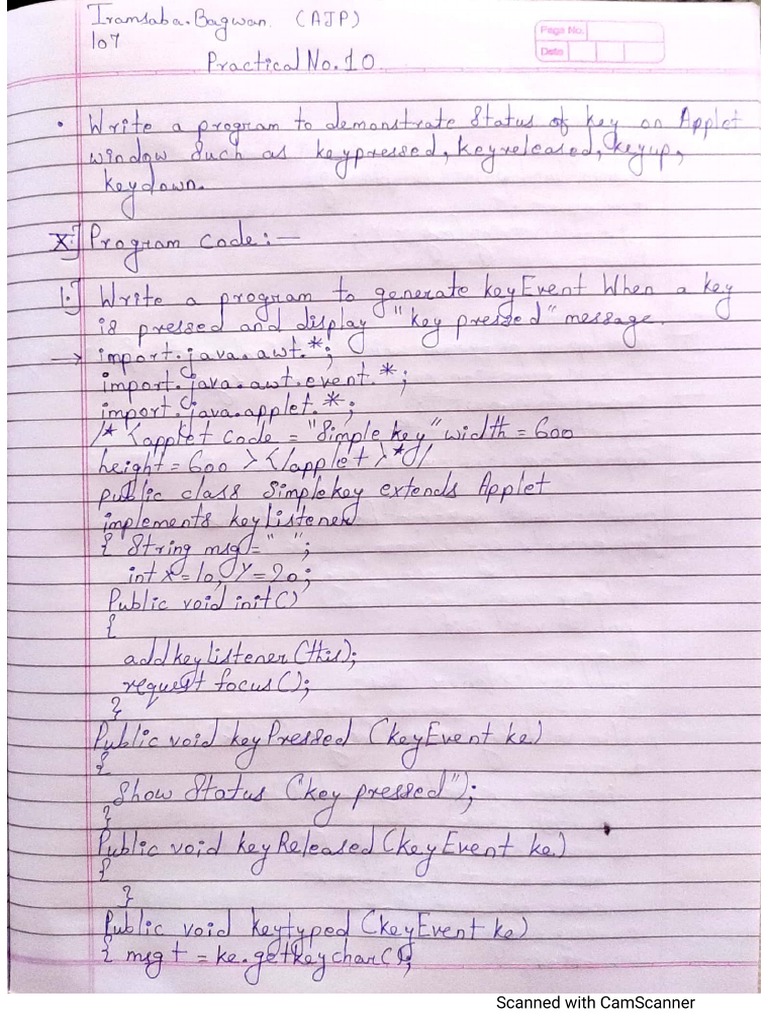 Iramsaba.Bagwan. (AJP)
107
Page No.
Date
Practical No.10.
• Write a program to demonstrate Status of key on Applet
window Such as keypressed, keyreleased, keyup,
keydown.
X.] Program Code:—
1.] Write a program to generate keyEvent When a key
is pressed and display "key pressed" message.
→ import.java.awt.*;
import.java.awt.event.*;
import.java.applet.*;
/* <applet code = "Simple key" width = 600
height = 600 > </applet > */
public class Simplekey extends Applet
implements keyListener
{ String msg = " ";
int x = 10, Y = 20;
Public void init()
{
addkeylistener (this);
request focus();
}
Public void keyPressed (keyEvent ke)
{
Show Status ("key pressed");
}
Public void keyReleased (keyEvent ke)
{
}
Public void keytyped (keyEvent ke)
{ msg + = ke.getkeychar();
Scanned with CamScanner